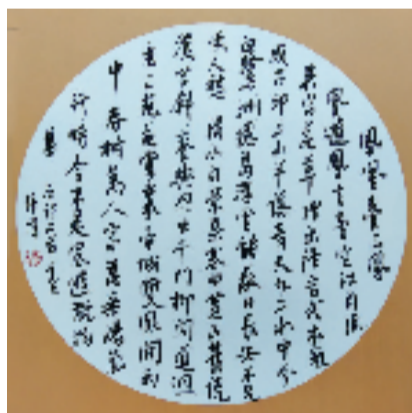 鳳凰臺上鳳
凰遊鳳去臺空江自流
吴宮花草埋幽徑晉代衣冠
成古邱三山半落青天外二水中分
白鷺洲總為浮雲能蔽日長安不見
使人愁 渭水自縈秦塞曲黃山舊繞
漢宮斜鑾輿迥出千門柳閣道迴
看上苑花雲裏帝城雙鳳闕雨
中春樹萬人家為乘陽氣
行時令不是宸遊玩物
華